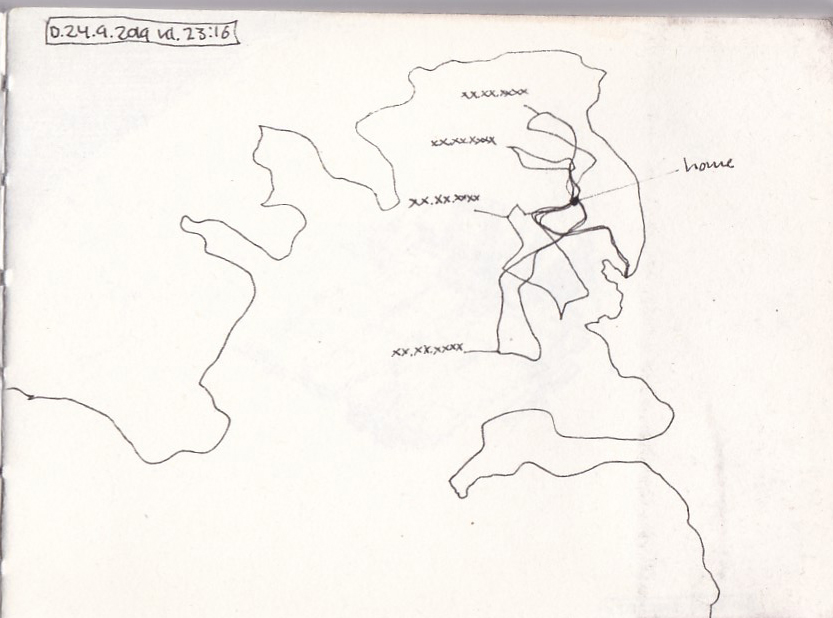 D.24.9.2019 kl. 23:16
xx.xx.xxxx
xx.xx.xxxx
home
xx.xx.xxxx
xx.xx.xxxx